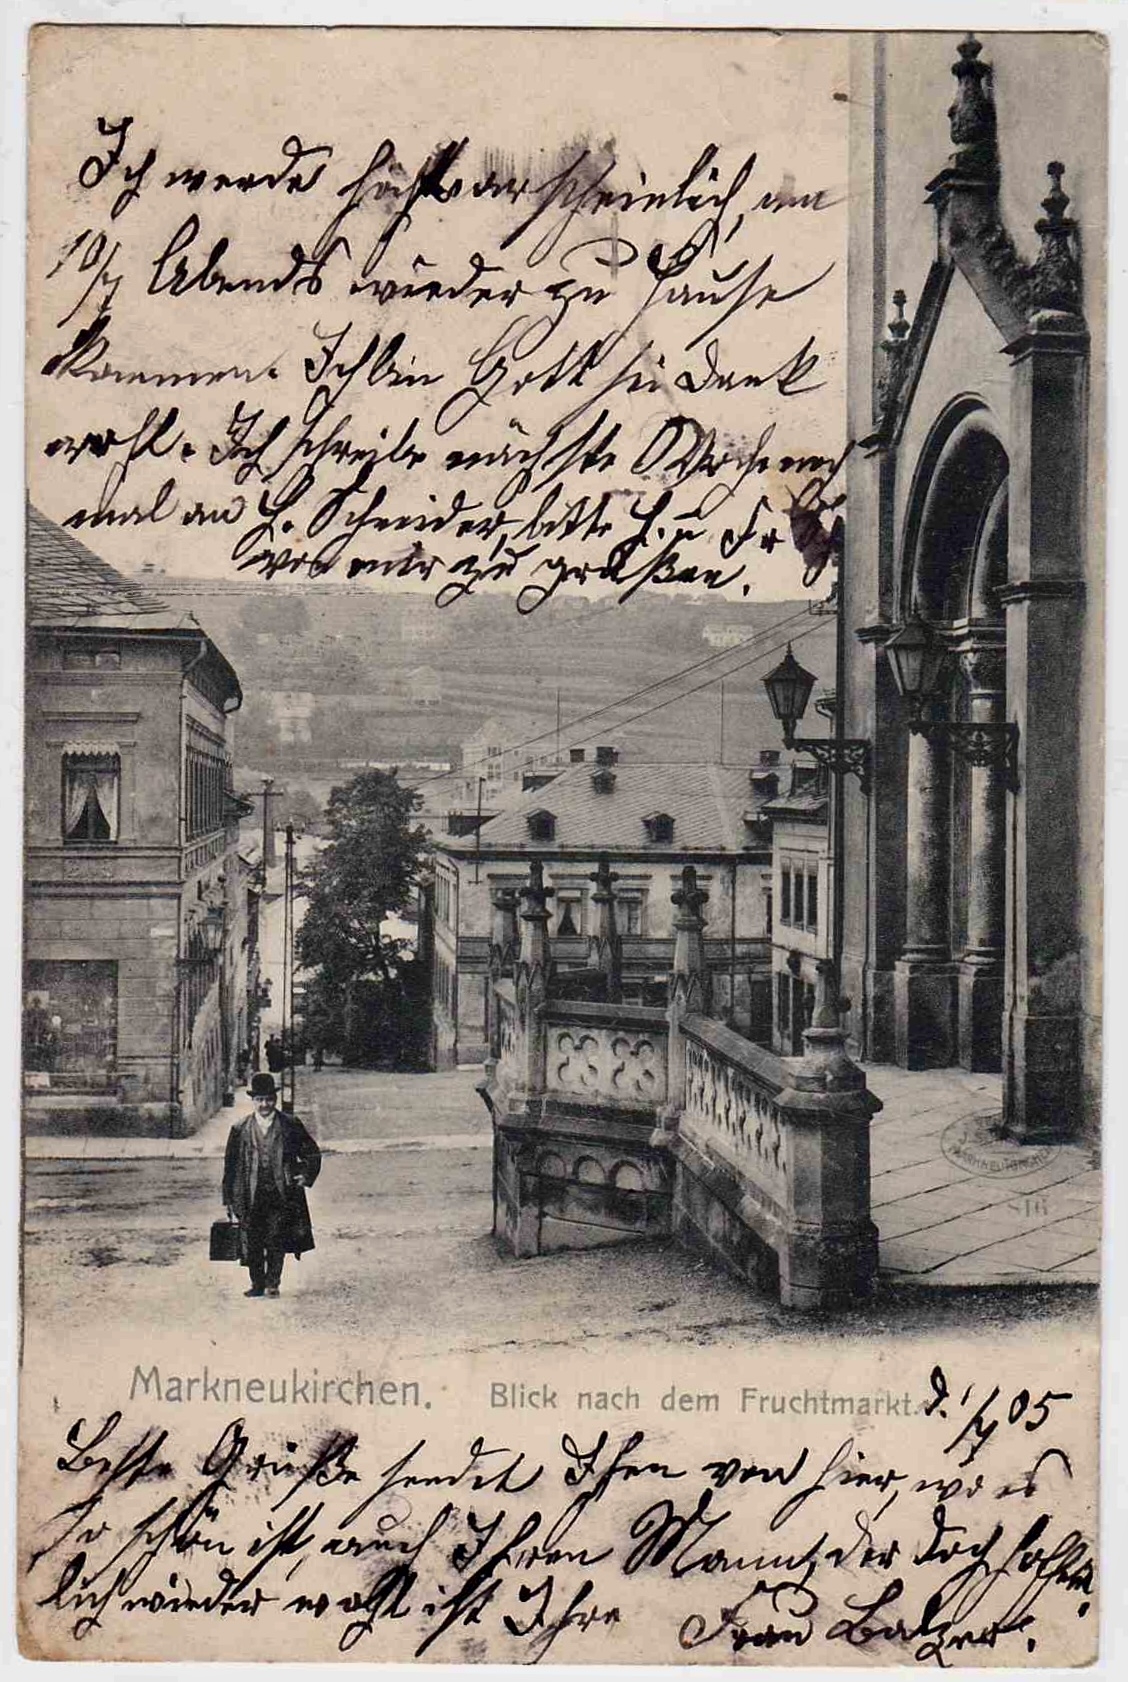 Ich werde höchstwarscheinlich, am
10/7 Abends wieder zu Hause
kommen. Ich bin Gott sei Dank
wohl. Ich schreibe nächste Woche noch
mal an H. Schneider, bitte H. u Fr Sch
von mir zu grüßen.
Markneukirchen. Blick nach dem Fruchtmarkt.
d. 1/7 05
Beste Grüße sendet Ihnen von hier, wo es
so schön ist, auch Ihren Mann, der doch hoffent
lich wieder wohl ist Ihre Frau Balzer.